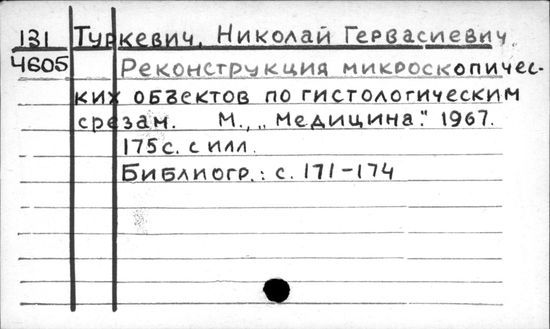 131 Туркевич, Николай Гервасиевич.
4605 Реконструкция микроскопичес-
ких объектов по гистологическим
срезам. М., „Медицина". 1967.
175 с. с илл.
Библиогр.: с. 171-174